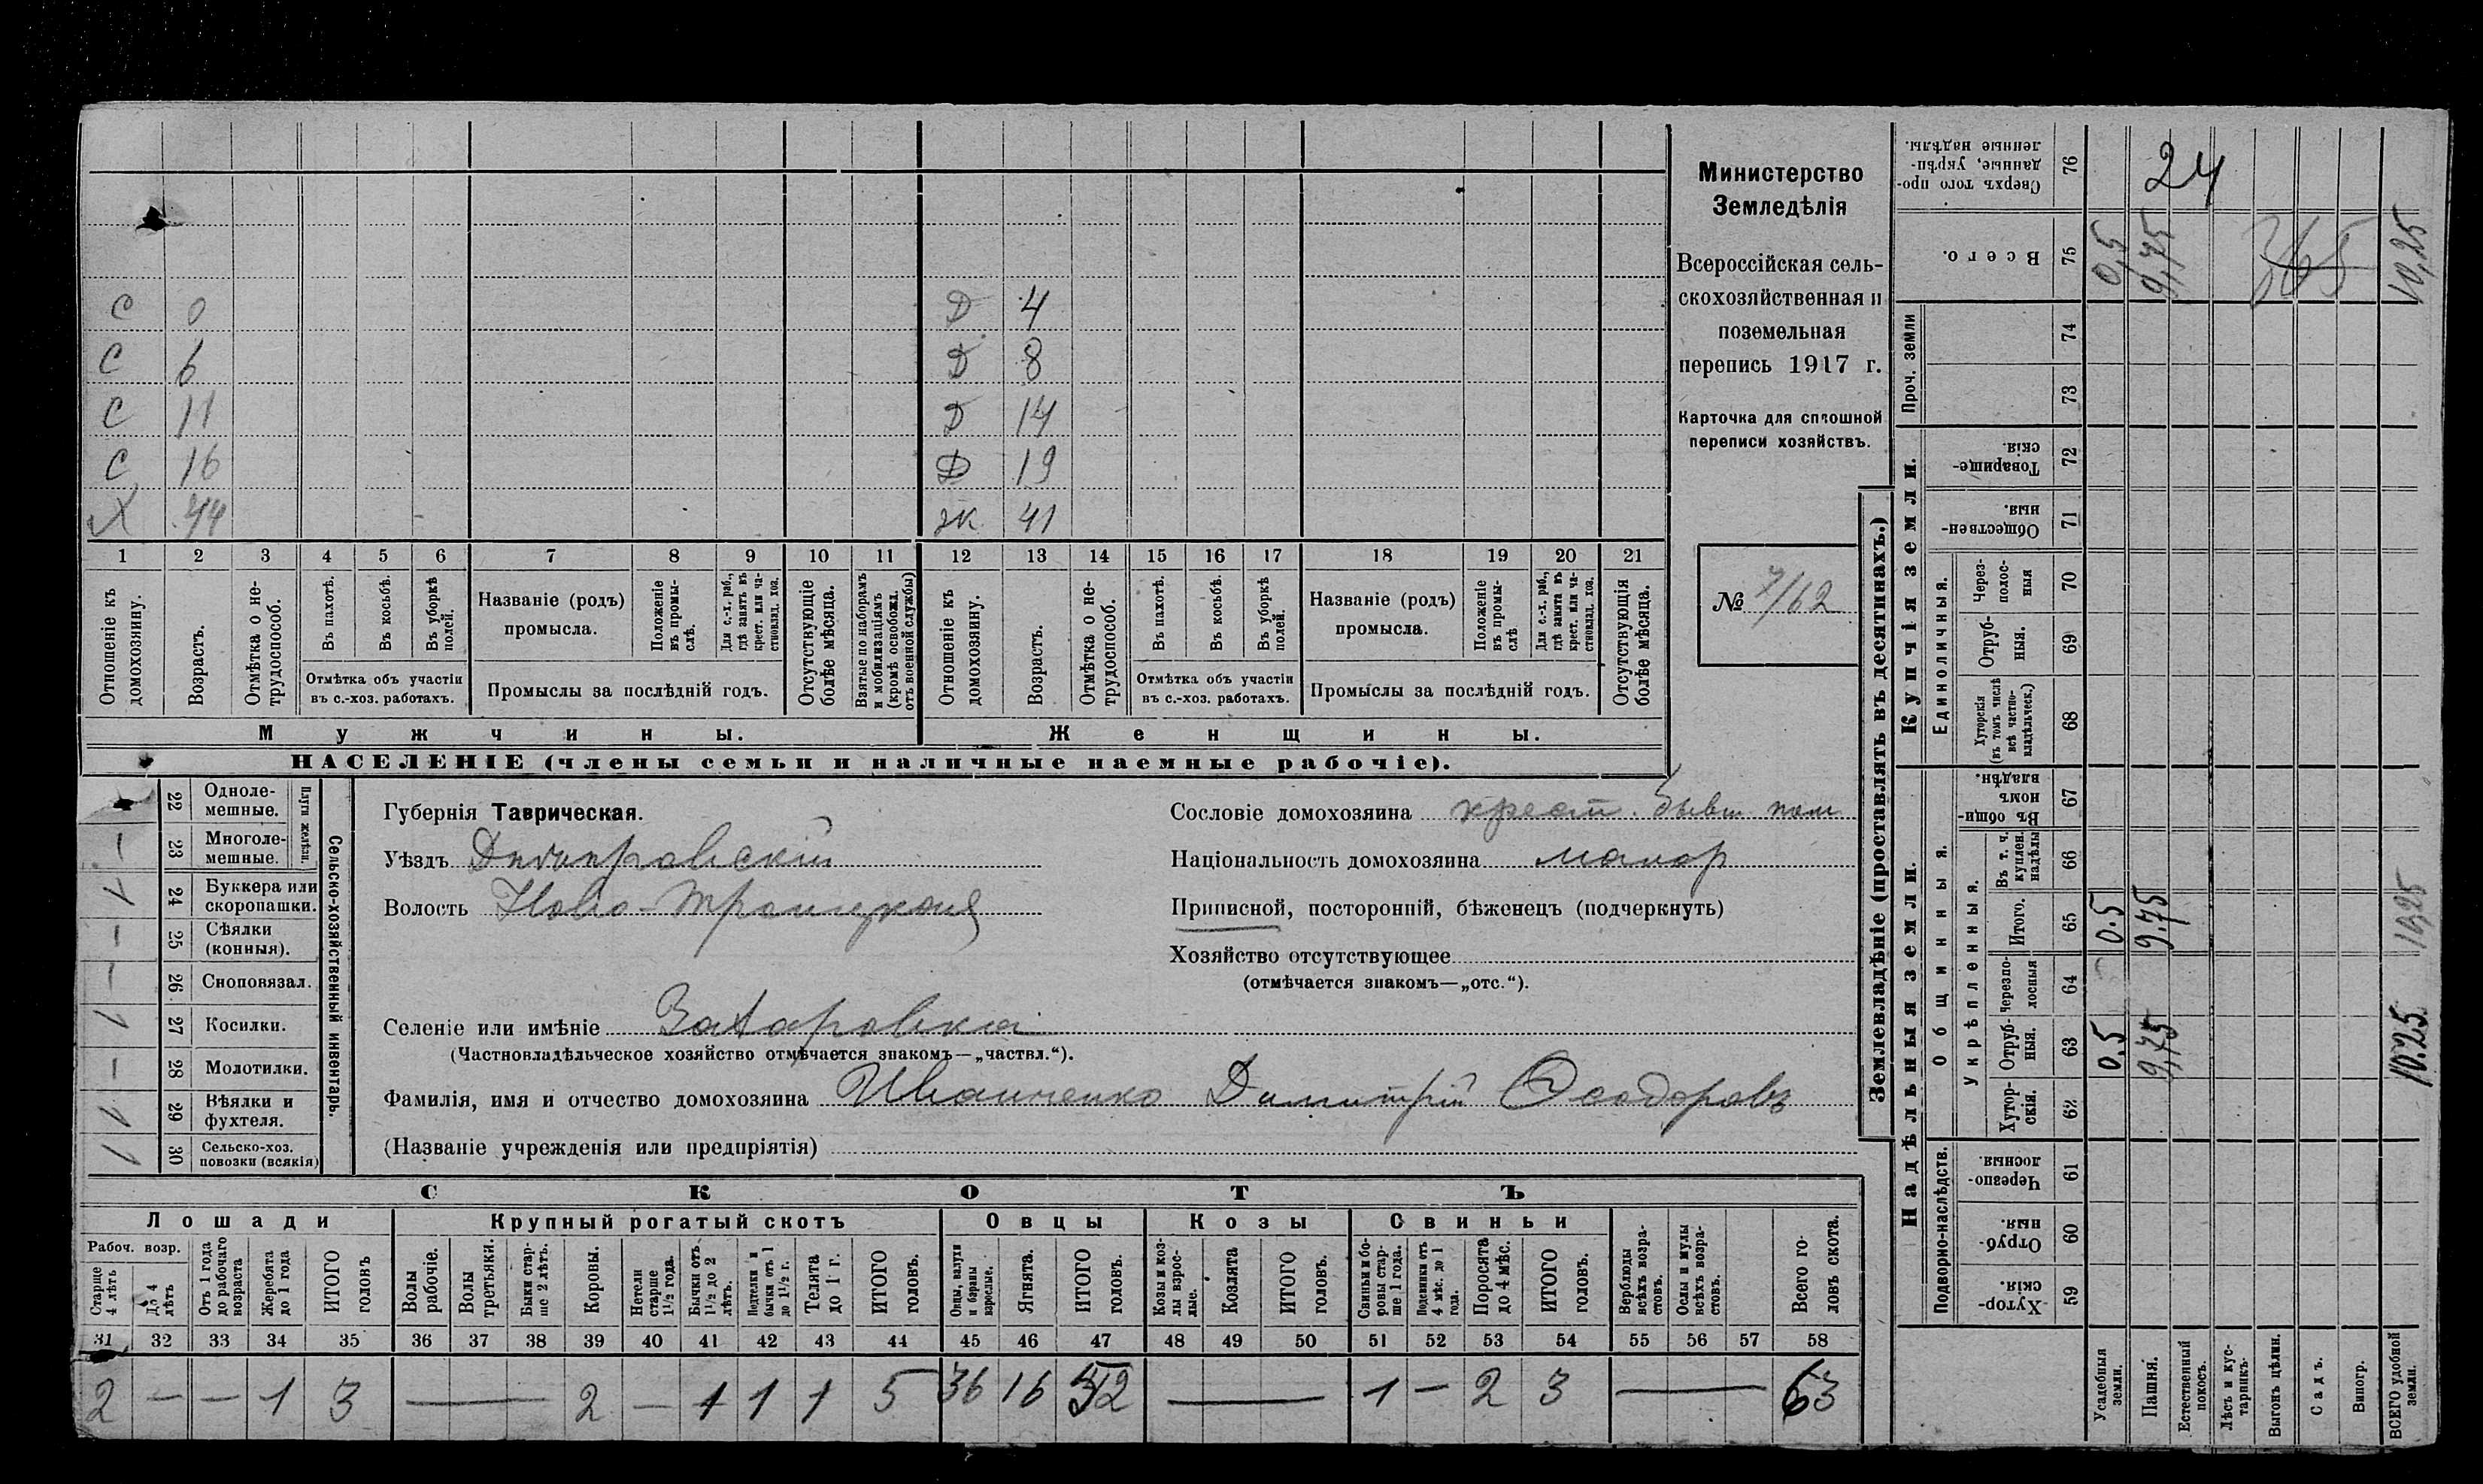 Министерство
Земледѣлія
Всероссійская сель-
скохозяйственная и
поземельная
перепись 1917 г.
Карточка для сплошной
переписи хозяйствъ.
№ 7/62
С 0 Д 4
С 6 Д 8
С 11 Д 14
С 16 Д 19
Х 44 ж 41
1 2 3 4 5 6 7 8 9 10 11 12 13 14 15 16 17 18 19 20 21
Отношеніе къ домохозяину.
Возрастъ.
Отмѣтка о не-трудоспособ.
Въ пахотѣ.
Въ косьбѣ.
Въ уборкѣ полей.
Отмѣтка объ участіи
въ с.-хоз. работахъ.
Названіе (родъ)
промысла.
Положеніе въ промы-слѣ.
Для с.-х. раб., гдѣ занятъ въ крест. или ча-стновлад. хоз.
Промыслы за послѣдній годъ.
Отсутствующіе болѣе мѣсяца.
Взятые по наборамъ и мобилизаціямъ (кромѣ освобожд. отъ военной службы)
Отношеніе къ домохозяину.
Возрастъ.
Отмѣтка о не-трудоспособ.
Въ пахотѣ.
Въ косьбѣ.
Въ уборкѣ полей.
Отмѣтка объ участіи
въ с.-хоз. работахъ.
Названіе (родъ)
промысла.
Положеніе въ промы-слѣ
Для с.-х. раб., гдѣ занята въ крест. или ча-стновлад. хоз.
Промыслы за послѣдній годъ.
Отсутствующія болѣе мѣсяца.
Мужчины. Женщины.
НАСЕЛЕНІЕ (члены семьи и наличные наемные рабочіе).
22 Одноле-мешные.
23 Многоле-мешные. —
Плуги желѣзн.
24 Буккера или скоропашки. 1
25 Сѣялки (конныя). —
26 Сноповязал. —
27 Косилки. 1
28 Молотилки. —
29 Вѣялки и фухтеля. 1
30 Сельско-хоз. повозки (всякія) 1
Сельско-хозяйственный инвентарь.
Губернія Таврическая.
Уѣздъ Днѣпровскій
Волость Ново-Троицкая
Сословіе домохозяина крест. бывш пом
Національность домохозяина малор
Приписной, посторонній, бѣженецъ (подчеркнуть)
Хозяйство отсутствующее
(отмѣчается знакомъ—„отс.“).
Селеніе или имѣніе Захаровка
(Частновладѣльческое хозяйство отмѣчается знакомъ—„частвл.“).
Фамилія, имя и отчество домохозяина Иваненко Димитрій Ѳеодоровъ
(Названіе учрежденія или предпріятія)
СКОТЪ
Лошади Крупный рогатый скотъ Овцы Козы Свиньи
Рабоч. возр.
Старше 4 лѣтъ
До 4 лѣтъ
Отъ 1 года до рабочаго возраста
Жеребята до 1 года
ИТОГО головъ
Волы рабочіе.
Волы третьяки.
Быки стар-ше 2 лѣтъ.
Коровы.
Нетели старше 1½ года.
Бычки отъ 1½ до 2 лѣтъ.
Подтелки и бычки отъ 1 до 1½ г.
Телята до 1 г.
ИТОГО головъ.
Овцы, валухи и бараны взрослые.
Ягнята.
ИТОГО головъ.
Козы и коз-лы взрос-лые.
Козлята
ИТОГО головъ.
Свиньи и бо-ровы стар-ше 1 года.
Подсвинки отъ 4 мѣс. до 1 года.
Поросята до 4 мѣс.
ИТОГО головъ.
Верблюды всѣхъ возра-стовъ.
Ослы и мулы всѣхъ возра-стовъ.
Всего го-ловъ скота.
31 32 33 34 35 36 37 38 39 40 41 42 43 44 45 46 47 48 49 50 51 52 53 54 55 56 57 58
2 — — 1 3 — 2 — 1 1 1 5 36 16 52 — 1 — 2 3 — 63
Землевладѣніе (проставлять въ десятинахъ.)
Надѣльныя земли. Купчія земли. Проч. земли
Подворно-наслѣдств.
Общинныя.
Укрѣпленныя.
Единоличныя.
Сверхъ того про-данные, укрѣп-ленные надѣлы. 76 24
Всего. 75 0,5 9,75 365 10,25
74
73
Товарище-скія. 72
Обществен-ныя. 71
Через-полос-ныя 70
Отруб-ныя. 69
Хуторскія (въ томъ числѣ всѣ частно-владѣльческ.) 68
Въ общи-номъ владѣн. 67
Въ т. ч. куплен. надѣлы 66
Итого. 65 0.5 9.75 10,25
Черезпо-лосныя 64
Отруб-ныя. 63 0.5 9,75 10.25
Хутор-скія. 62
Черезпо-лосныя. 61
Отруб-ныя. 60
Хутор-скія. 59
Усадебныя земли.
Пашня.
Естественный покосъ.
Лѣсъ и кус-тарникъ.
Выгонъ цѣлин.
Садъ.
Виногр.
ВСЕГО удобной земли.